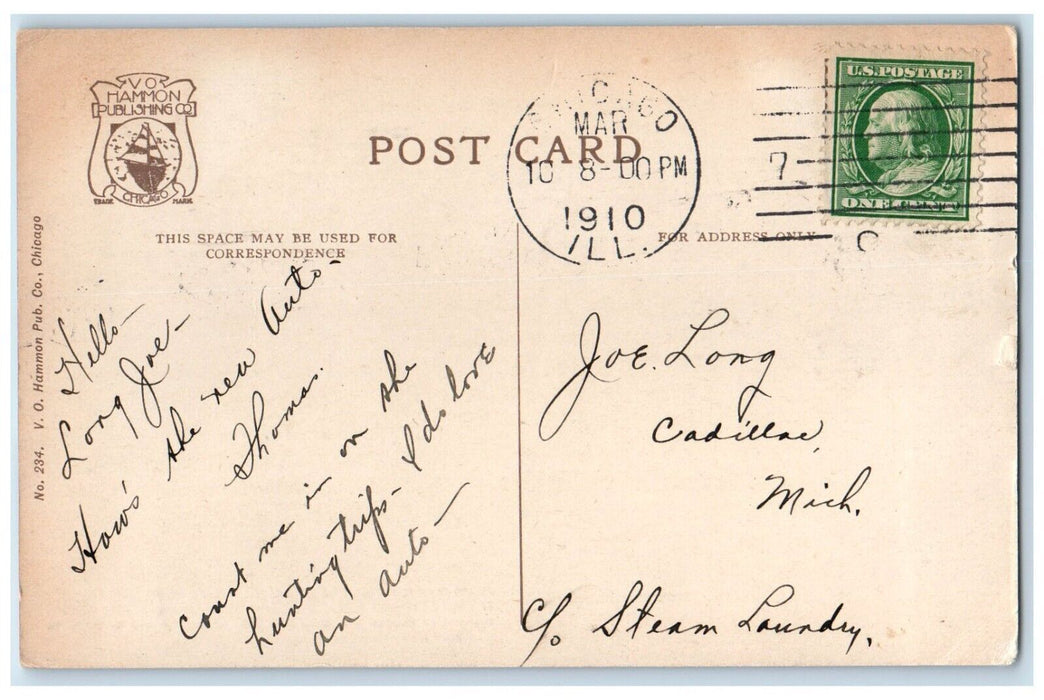 V O
HAMMON
PUBLISHING CO
CHICAGO
TRADE MARK
POST CARD
CHICAGO
MAR
10 8-00 PM
1910
ILL.
7
C
U.S. POSTAGE
ONE CENT
THIS SPACE MAY BE USED FOR
CORRESPONDENCE
FOR ADDRESS ONLY
No. 234. V. O. Hammon Pub. Co., Chicago
Hello-
Long Joe-
How's the new Auto-
Thomas.
count me in on the
hunting trips- I do love
an auto-
Joe. Long
Cadillac,
Mich.
C/o Steam Laundry.